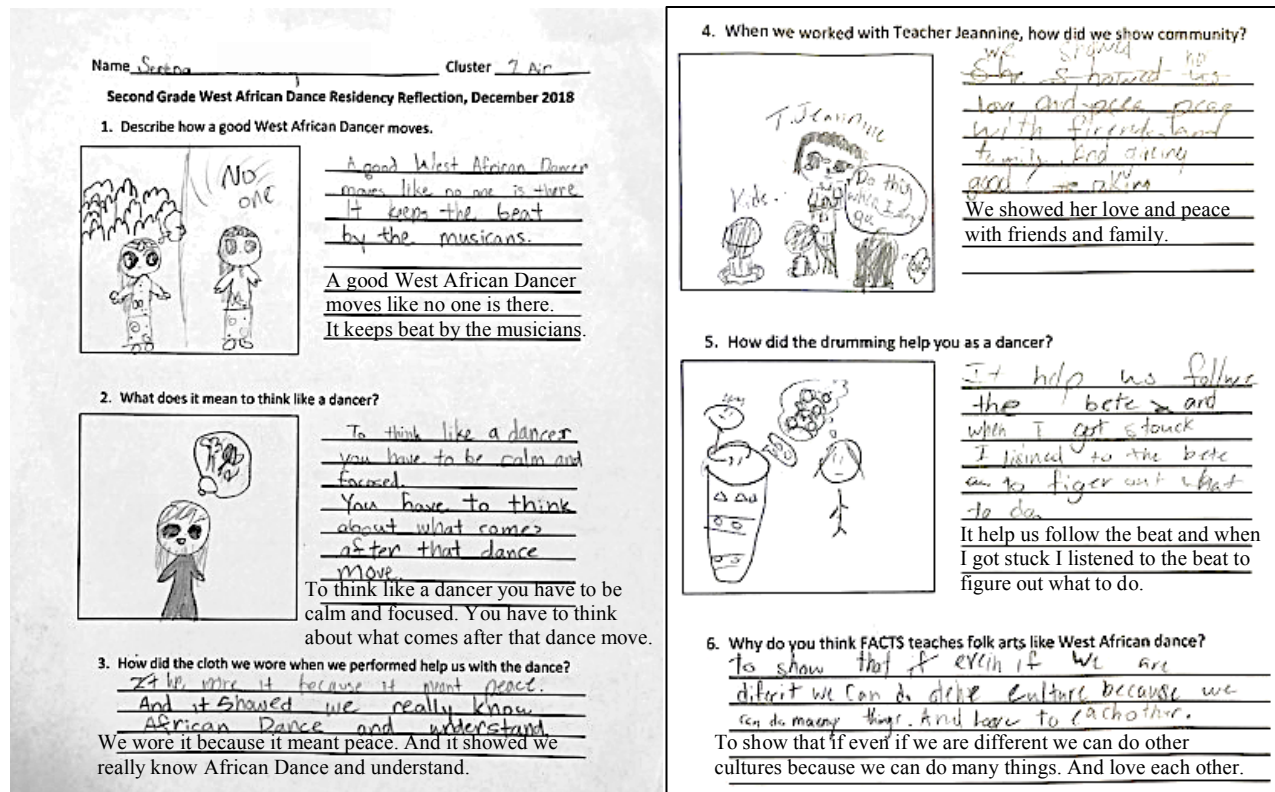 Name Serena Cluster 2 Air
Second Grade West African Dance Residency Reflection, December 2018
1. Describe how a good West African Dancer moves.
No
one
A good West African Dancer
moves like no one is there
It keeps the beat
by the musicans.
A good West African Dancer
moves like no one is there.
It keeps beat by the musicians.
2. What does it mean to think like a dancer?
To think like a dancer
you have to be calm and
focused.
You have to think
about what comes
after that dance
move.
To think like a dancer you have to be
calm and focused. You have to think
about what comes after that dance move.
3. How did the cloth we wore when we performed help us with the dance?
it because it meant peace.
And it showed we really know
African Dance and understand
We wore it because it meant peace. And it showed we
really know African Dance and understand.
4. When we worked with Teacher Jeannine, how did we show community?
T. Jeannine
Kids.
Do this
when I
we
love and
with
family. And
good
We showed her love and peace
with friends and family.
5. How did the drumming help you as a dancer?
It help us follwe
the bete and
when I got stouck
I lisined to the bete
to figer out what
to do
It help us follow the beat and when
I got stuck I listened to the beat to
figure out what to do.
6. Why do you think FACTS teaches folk arts like West African dance?
to show that if evein if we are
diferit we can do culture because we
can do maeny things. And to eachother.
To show that if even if we are different we can do other
cultures because we can do many things. And love each other.